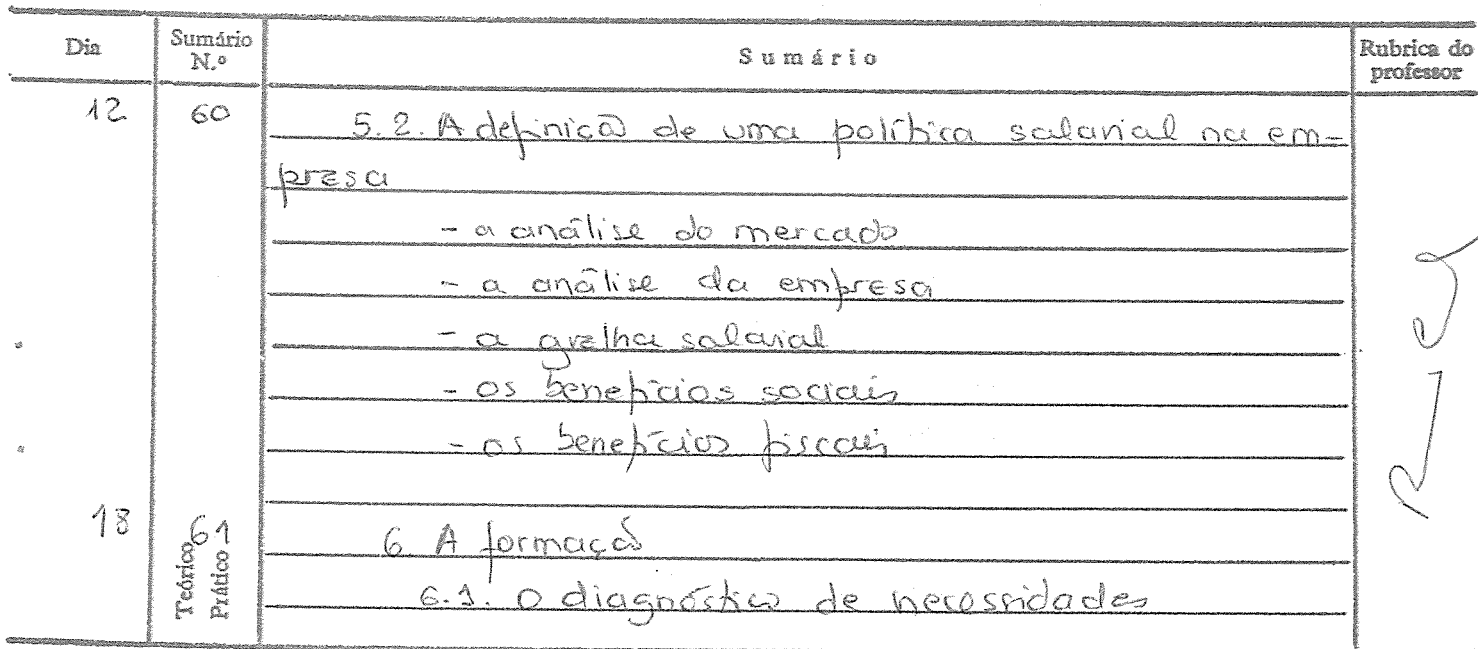 Dia Sumário N.º Sumário Rubrica do professor
12 60 5.2. A definição de uma política salarial na em-
presa
- a análise do mercado
- a análise da empresa
- a grelha salarial
- os benefícios sociais
- os benefícios fiscais
18 61 6 A formação
Teórico Prático 6.1. O diagnóstico de necessidades